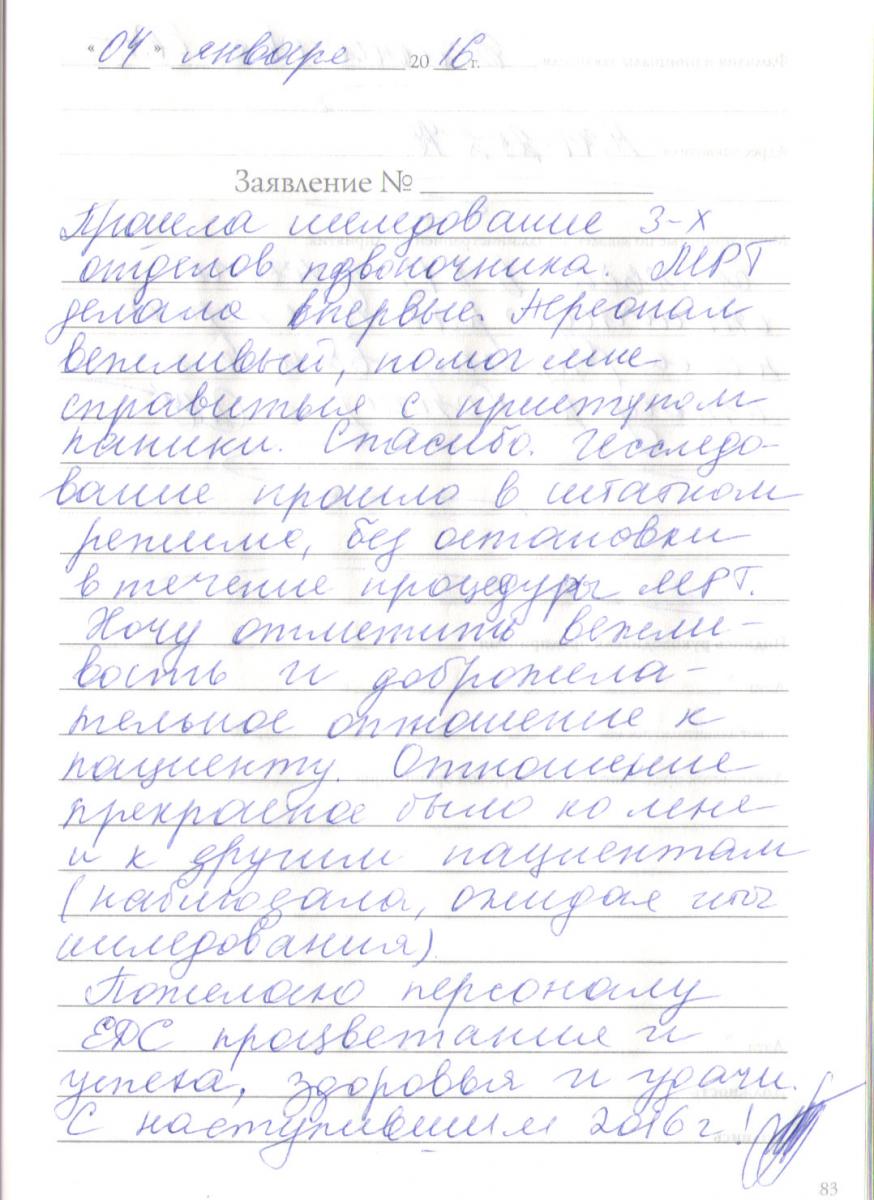 "04" января 2016 г.
Заявление №
Прошла исследование 3-х
отделов позвоночника. МРТ
делала впервые. Персонал
вежливый, помог мне
справиться с приступом
паники. Спасибо. Исследо-
вание прошло в штатном
режиме, без остановки
в течение процедуры МРТ.
Хочу отметить вежли-
вость и доброжела-
тельное отношение к
пациенту. Отношение
прекрасное было ко мне
и к другим пациентам
(наблюдала, ожидая
исследования).
Пожелаю персоналу
ЕДС процветания и
успеха, здоровья и удачи.
С наступившим 2016 г!
83